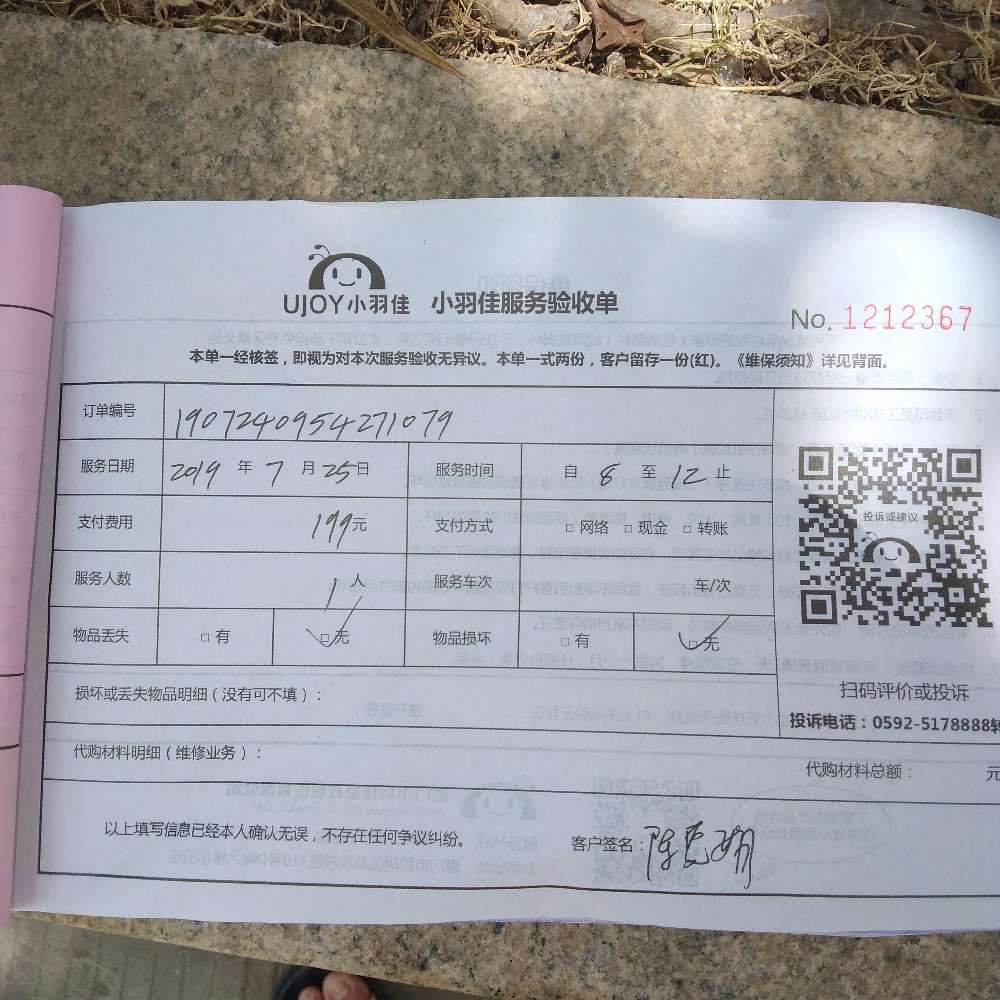 UJOY小羽佳 小羽佳服务验收单
No. 1212367
本单一经核签，即视为对本次服务验收无异议。本单一式两份，客户留存一份(红)。《维保须知》详见背面。
订单编号 1907240954271079
服务日期 2019 年 7 月 25日 服务时间 自 8 至 12 止
支付费用 199元 支付方式 □ 网络 □ 现金 □ 转账
服务人数 1 人 服务车次 车/次
物品丢失 □ 有 □无 物品损坏 □ 有 □无
损坏或丢失物品明细（没有可不填）：
代购材料明细（维修业务）：
代购材料总额： 元
投诉或建议
扫码评价或投诉
投诉电话：0592-5178888转
以上填写信息已经本人确认无误，不存在任何争议纠纷。
客户签名：陈